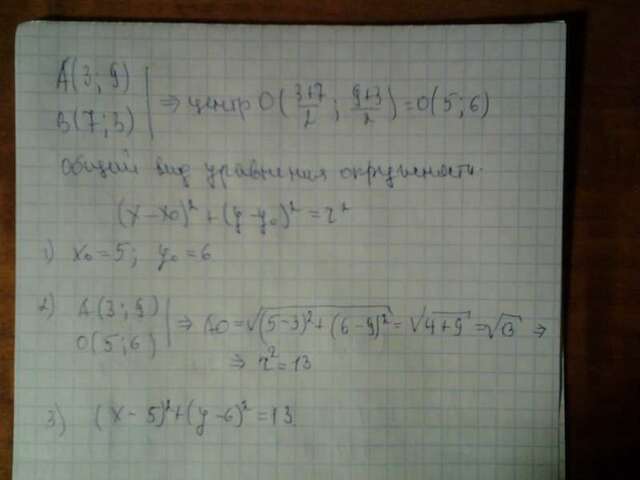 A(3; 9)
B(7; 3)
⇒ центр O((3+7)/2; (9+3)/2) = O(5; 6)
Общий вид уравнения окружности:
(x − x₀)² + (y − y₀)² = r²
1) x₀ = 5; y₀ = 6
2) A(3; 9)
O(5; 6)
⇒ AO = √((5−3)² + (6−9)²) = √(4+9) = √13 ⇒
⇒ r² = 13
3) (x − 5)² + (y − 6)² = 13